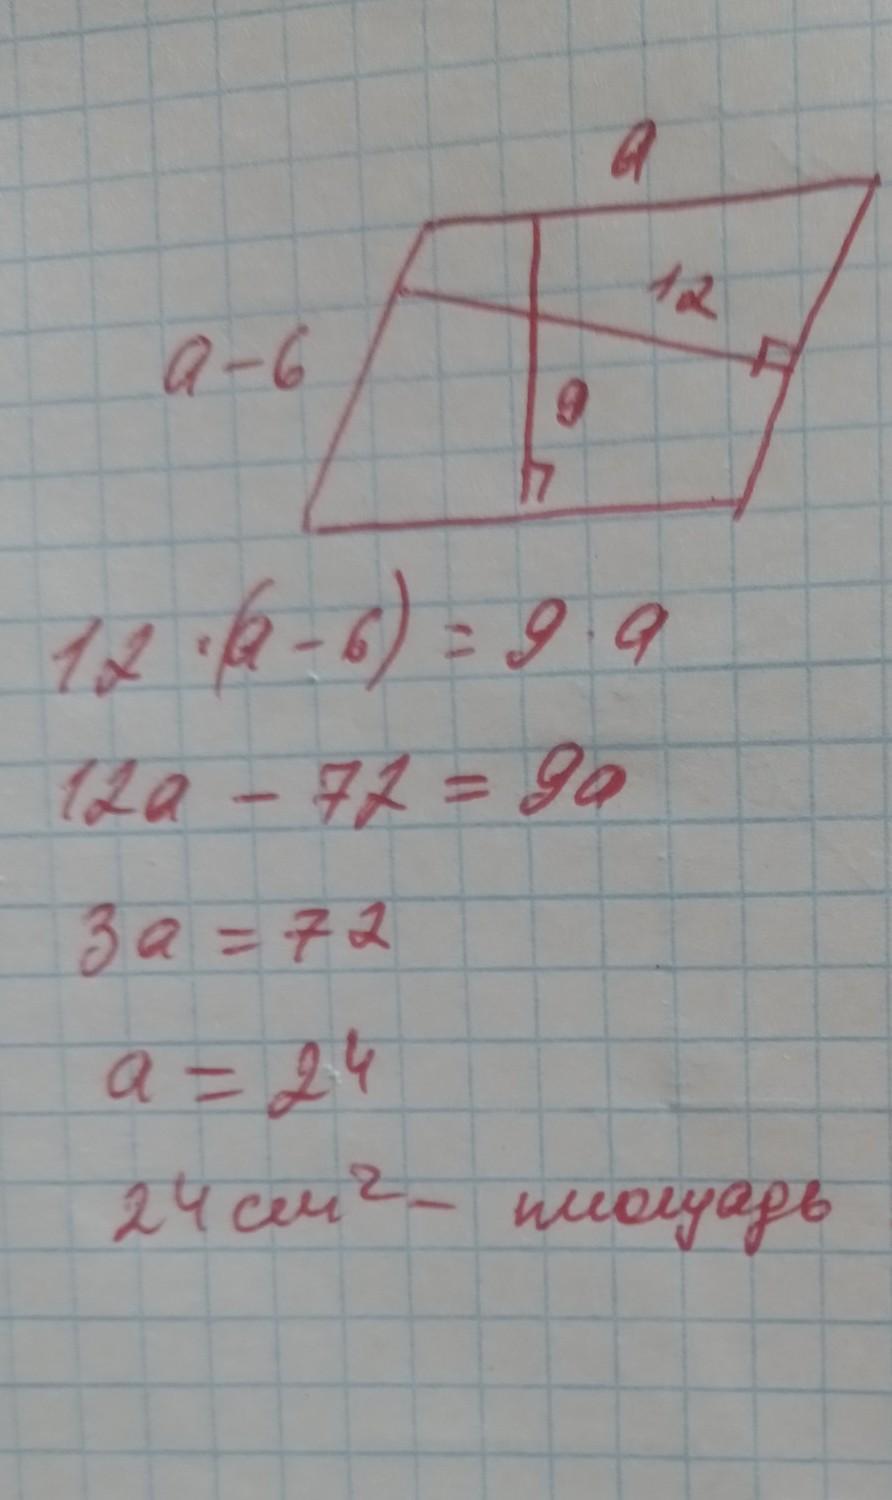 a
12
a - 6
9
12 · (a - 6) = 9 · a
12a - 72 = 9a
3a = 72
a = 24
24 см² - площадь